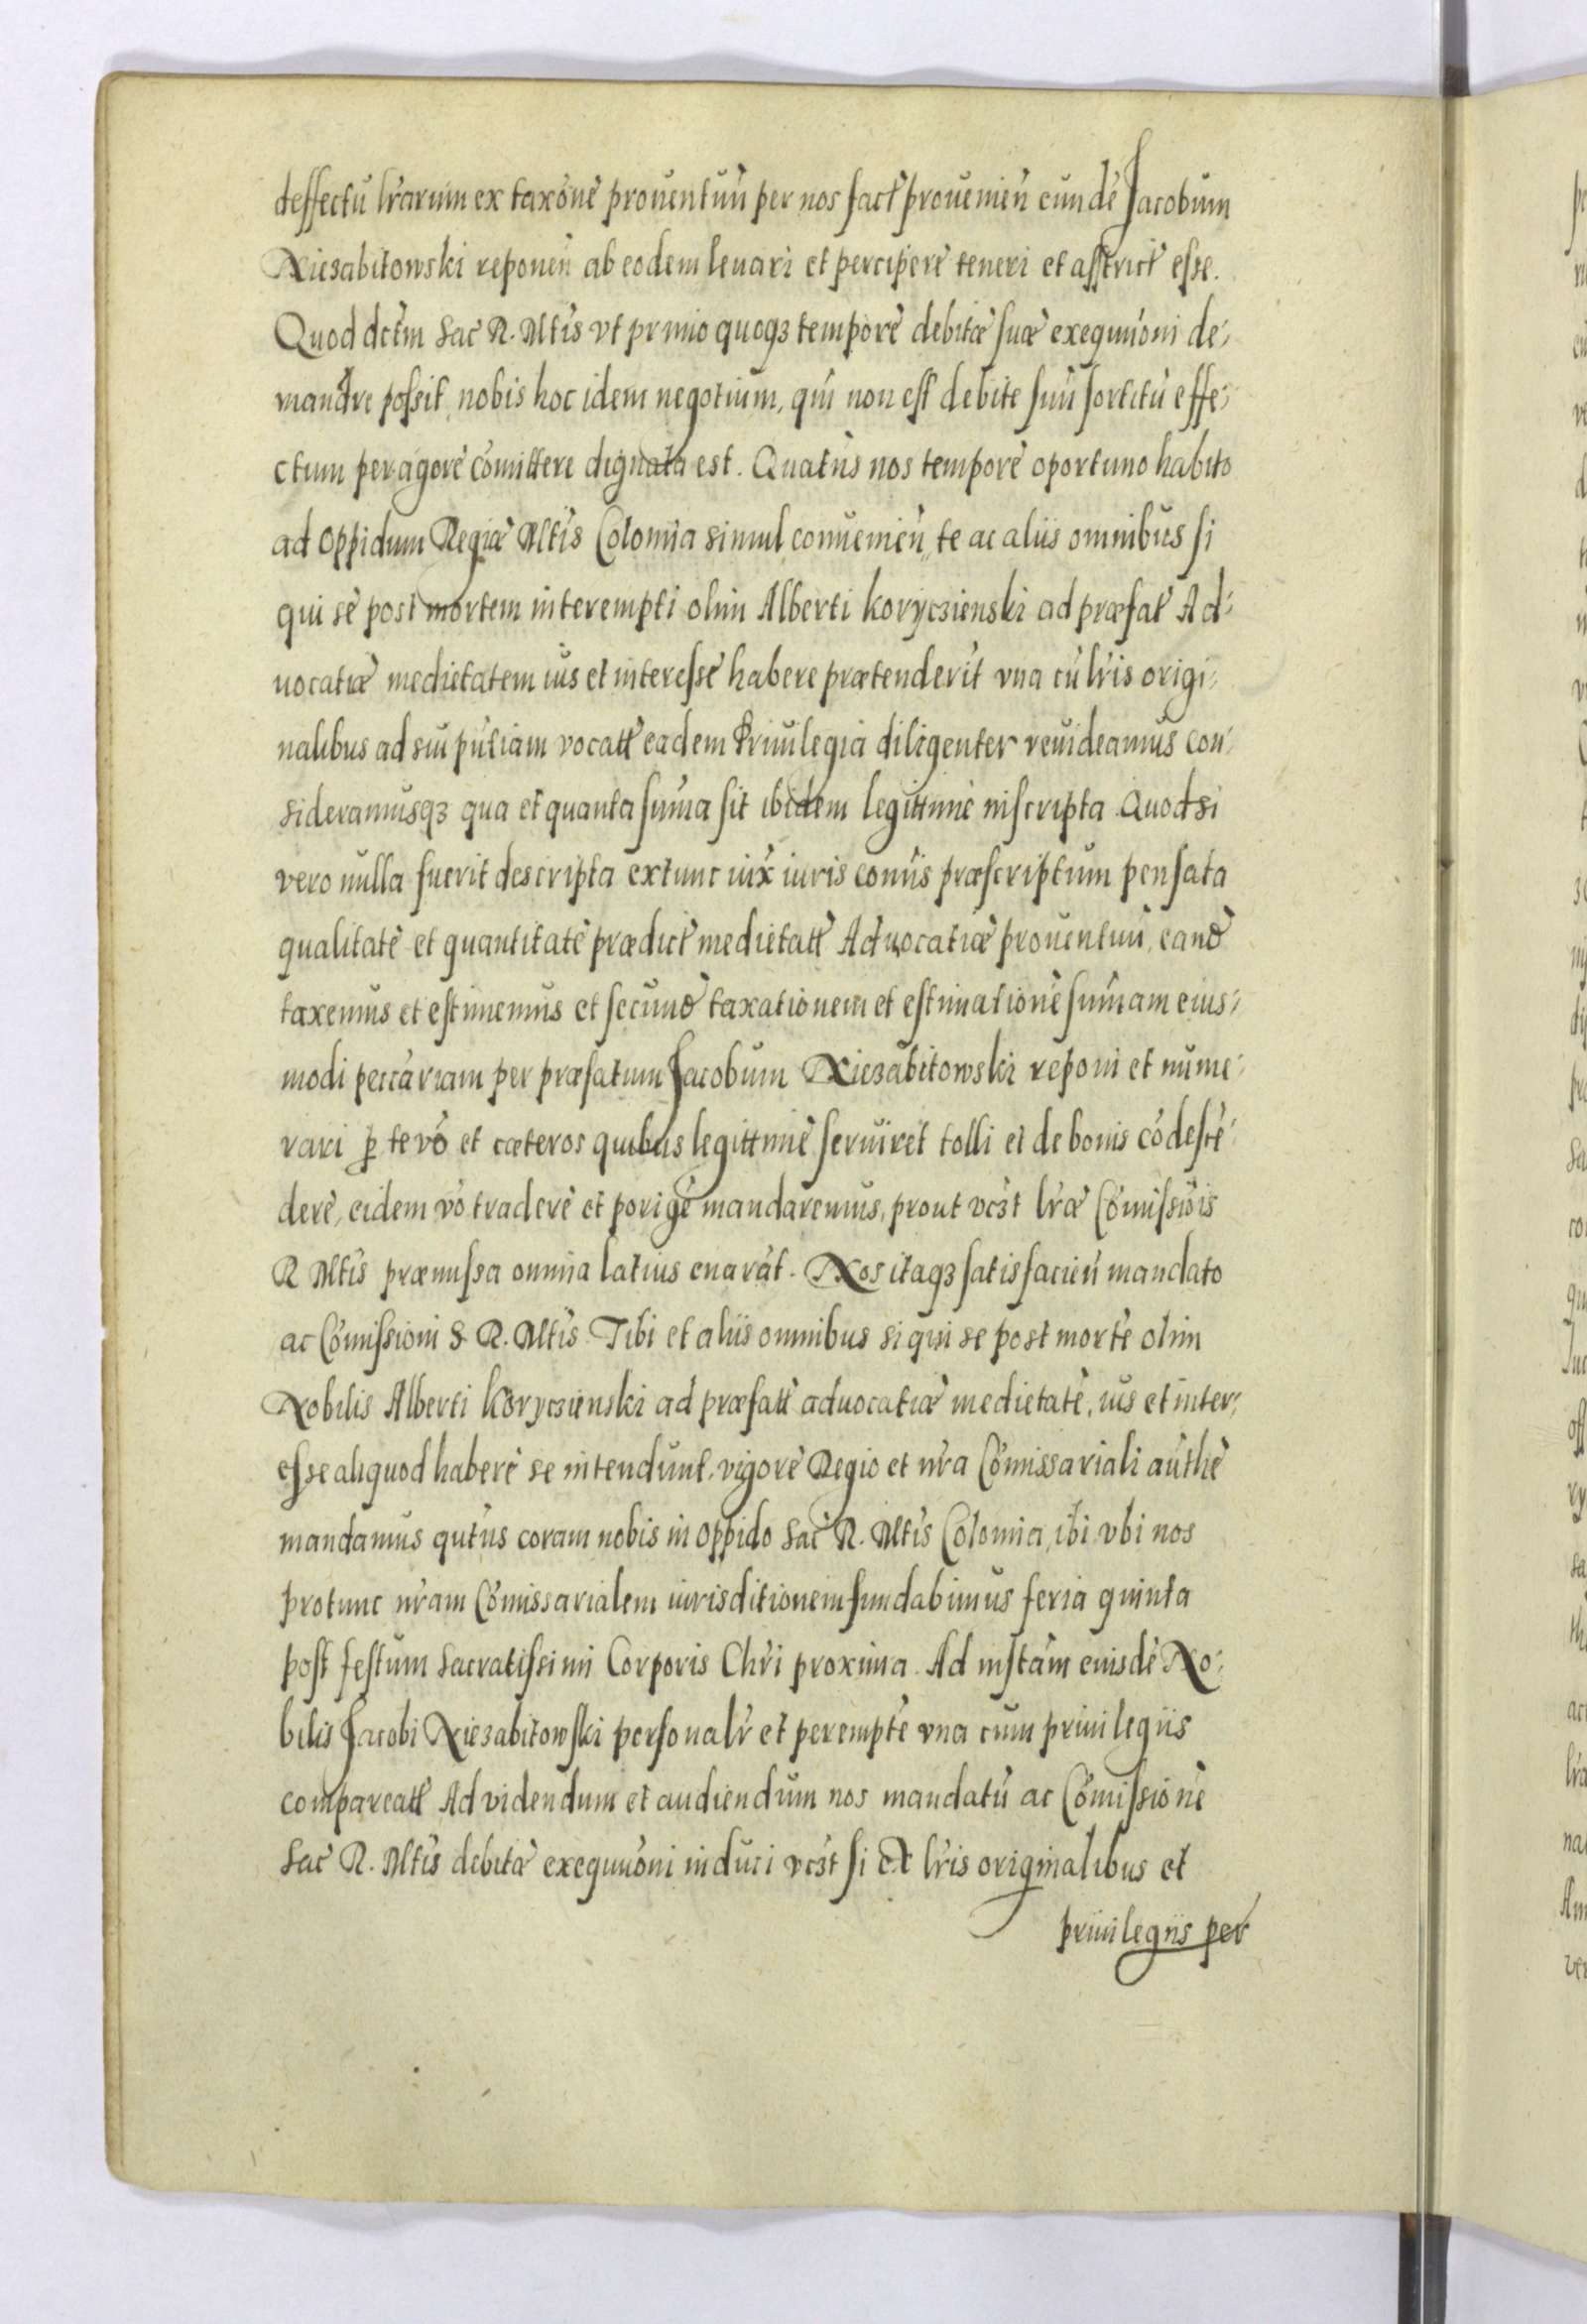 deffectu lr̃arum ex taxõne prouentuũ per nos fact̃ prouenieñ eundẽ Jacobum
Niezabitowski reponeñ ab eodem leuari et percipere teneri et astrict̃ esse.
Quod dct̃m Sac̃ R. Mtis vt primo quoqꝫ tempore debitæ suæ exequuõni de-
mandre possit, nobis hoc idem negotium, qui non est debite suũ sortitũ effe-
ctum peragere cõmittere dignata est. Quatũs nos tempore oportuno habito
ad Oppidum Regiæ Mtis Colomia simul conuenieñ, te ac aliis omnibus si
qui se post mortem interempti olim Alberti Koryczienski ad præfat̃ Ad-
uocatiæ medietatem ius et interesse habere prætenderit vna cũ lr̃is origi-
nalibus ad sui pñtiam vocatt̃ eadem Priuilegia diligenter reuideamus con-
sideramusqꝫ qua et quanta sum̃a sit ibidem legittime inscripta. Quod si
vero nulla fuerit descripta extunc iux̃ iuris com̃is præscriptum pensata
qualitate et quantitate prædict̃ medietatt̃ Aduocatiæ prouentuũ, eand̃
taxemus et estimemus et secund̃ taxationem et estimationẽ sum̃am eius-
modi peccariam per præfatum Jacobum Niezabitowski reponi et nume-
rari ꝑ te vo et cæteros quibus legittime seruiret tolli et de bonis cõdesce-
dere, eidem vo tradere et porige mandaremus, prout vest̃ lr̃æ Cõmissiois
R Mtis præmissa omnia latius enarãt. Nos itaqꝫ satisfacieñ mandato
ac Cõmissioni S. R. Mtis Tibi et aliis omnibus si qui se post mortẽ olim
Nobilis Alberti Koryczienski ad præfatt̃ aduocatiæ medietatẽ, ius et inter-
esse aliquod habere se intendunt, vigore Regio et nr̃a Cõmissariali authẽ
mandamus qutũs coram nobis in oppido Sac̃ R. Mtis Colomia, ibi vbi nos
protunc nr̃am Cõmissarialem iurisditionem fundabimus feria quinta
post festum Sacratissimi Corporis Chr̃i proxima. Ad instãm eiusdẽ No-
bilis Jacobi Niezabitowski personalr̃ et perempte vna cum priuilegiis
compareatt̃ Ad videndum et audiendum nos mandatũ ac Cõmissionẽ
Sac̃ R. Mtis debitæ exequuõni induci vest̃ si ex lr̃is originalibus et
priuilegiis per